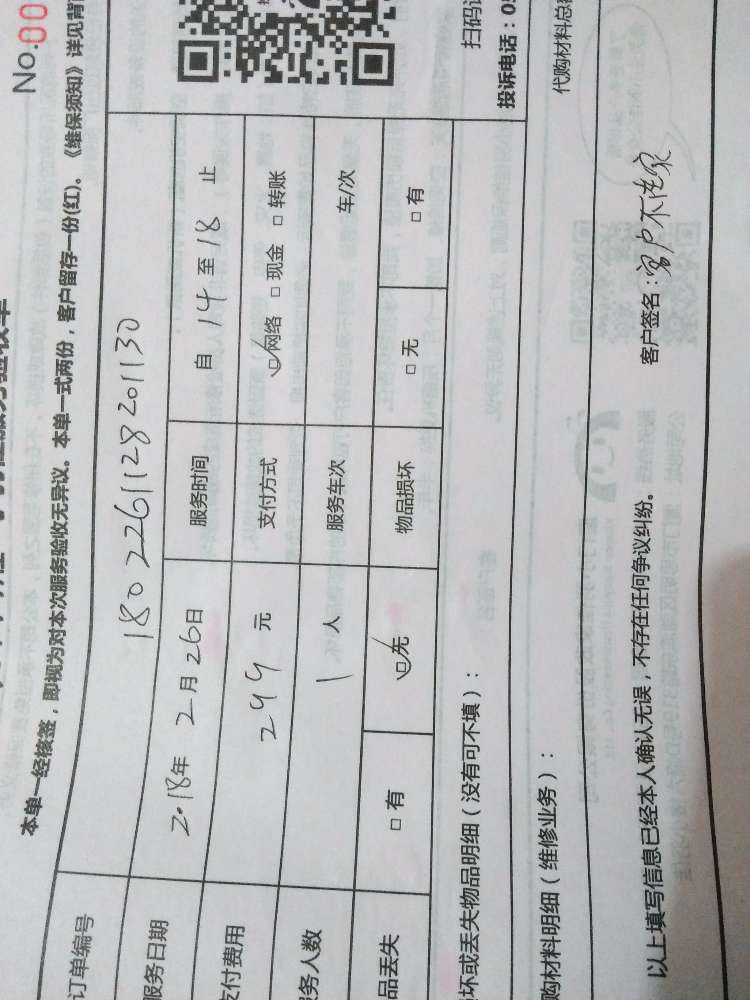 No.00
本单一经核签，即视为对本次服务验收无异议。本单一式两份，客户留存一份(红)。《维保须知》详见背
订单编号 180226112820 1130
服务日期 2018年 2月 26日 服务时间 自 14 至 18 止
支付费用 299 元 支付方式 ☑网络 □现金 □转账
服务人数 1 人 服务车次 车/次
品丢失 □有 ☑无 物品损坏 □无 □有
坏或丢失物品明细（没有可不填）：
扫码
投诉电话：0
购材料明细（维修业务）：
代购材料总
以上填写信息已经本人确认无误，不存在任何争议纠纷。
客户签名：客户不在家